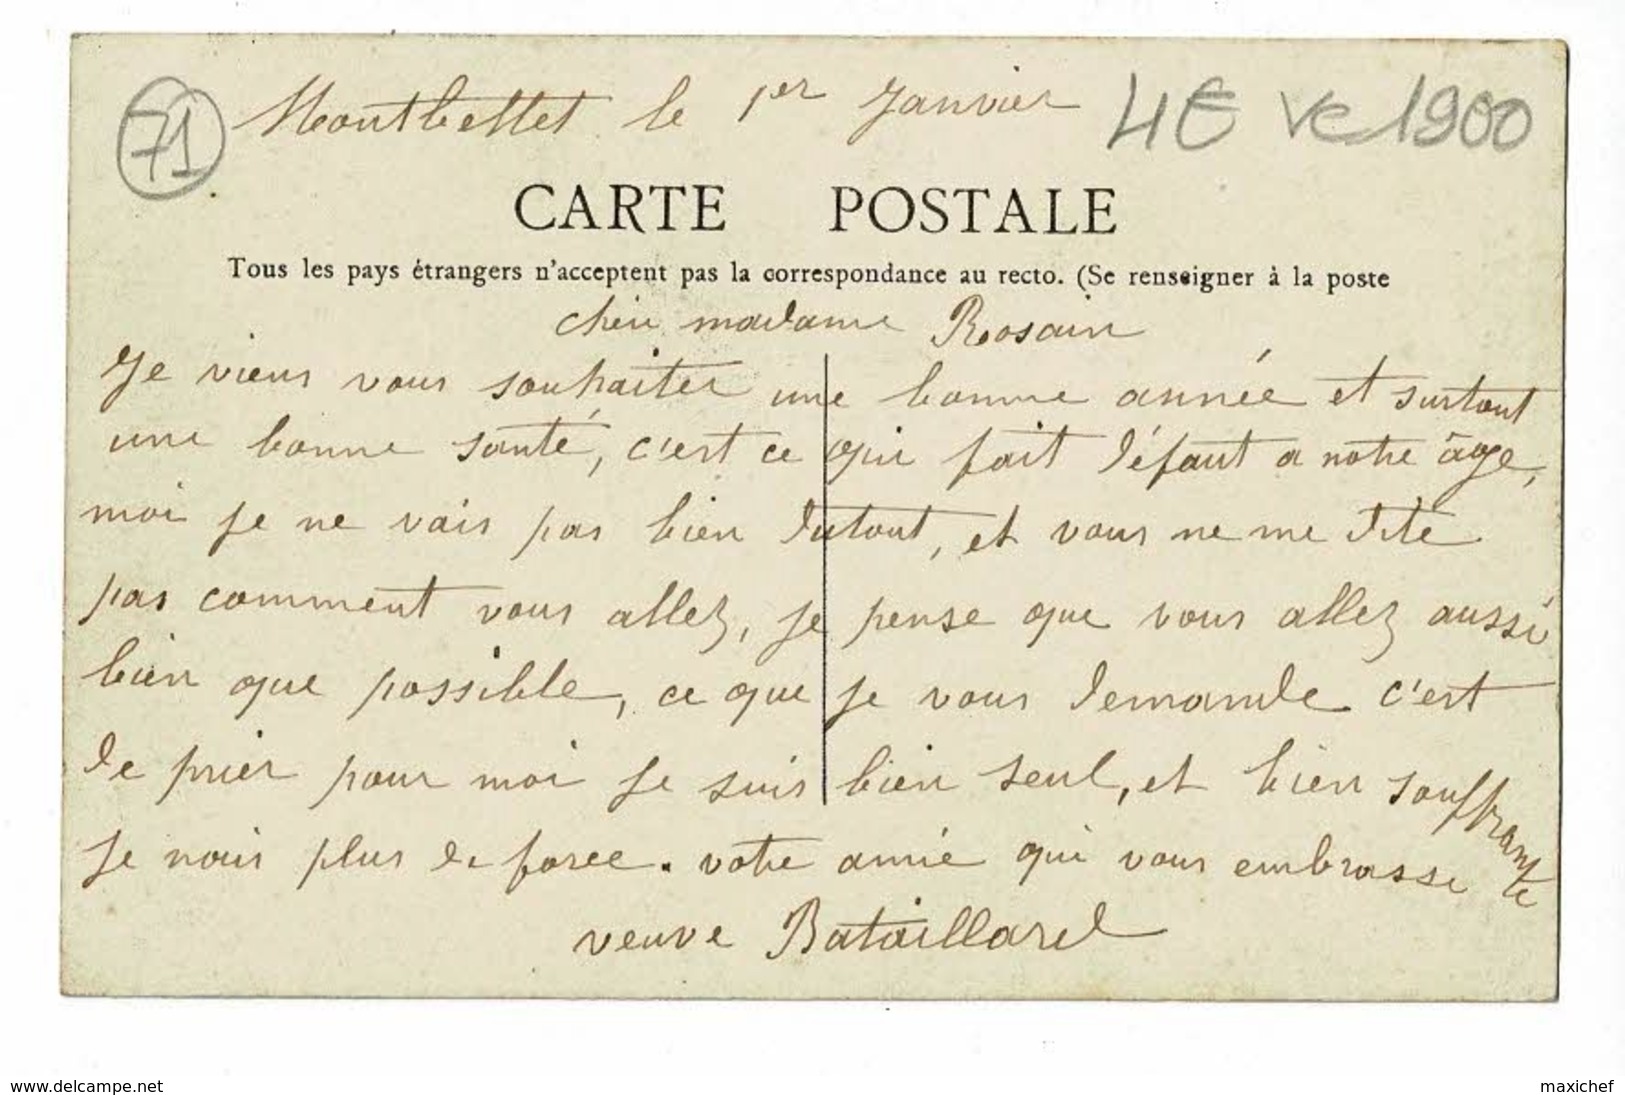 71
Montbellet le 1er Janvier
4€ vc 1900
CARTE POSTALE
Tous les pays étrangers n'acceptent pas la correspondance au recto. (Se renseigner à la poste
chèu madame Rosain
Je viens vous souhaiter une bonne année et surtout
une bonne santé, c'est ce qui fait défaut a notre âge,
moi je ne vais pas bien dutout, et vous ne me dite
pas comment vous allez, je pense que vous allez aussi
bien que possible, ce que je vous demande c'est
de prier pour moi je suis bien seul, et bien souffrante
je nais plus de force. votre amie qui vous embrasse
veuve Bataillard
www.delcampe.net
maxichef